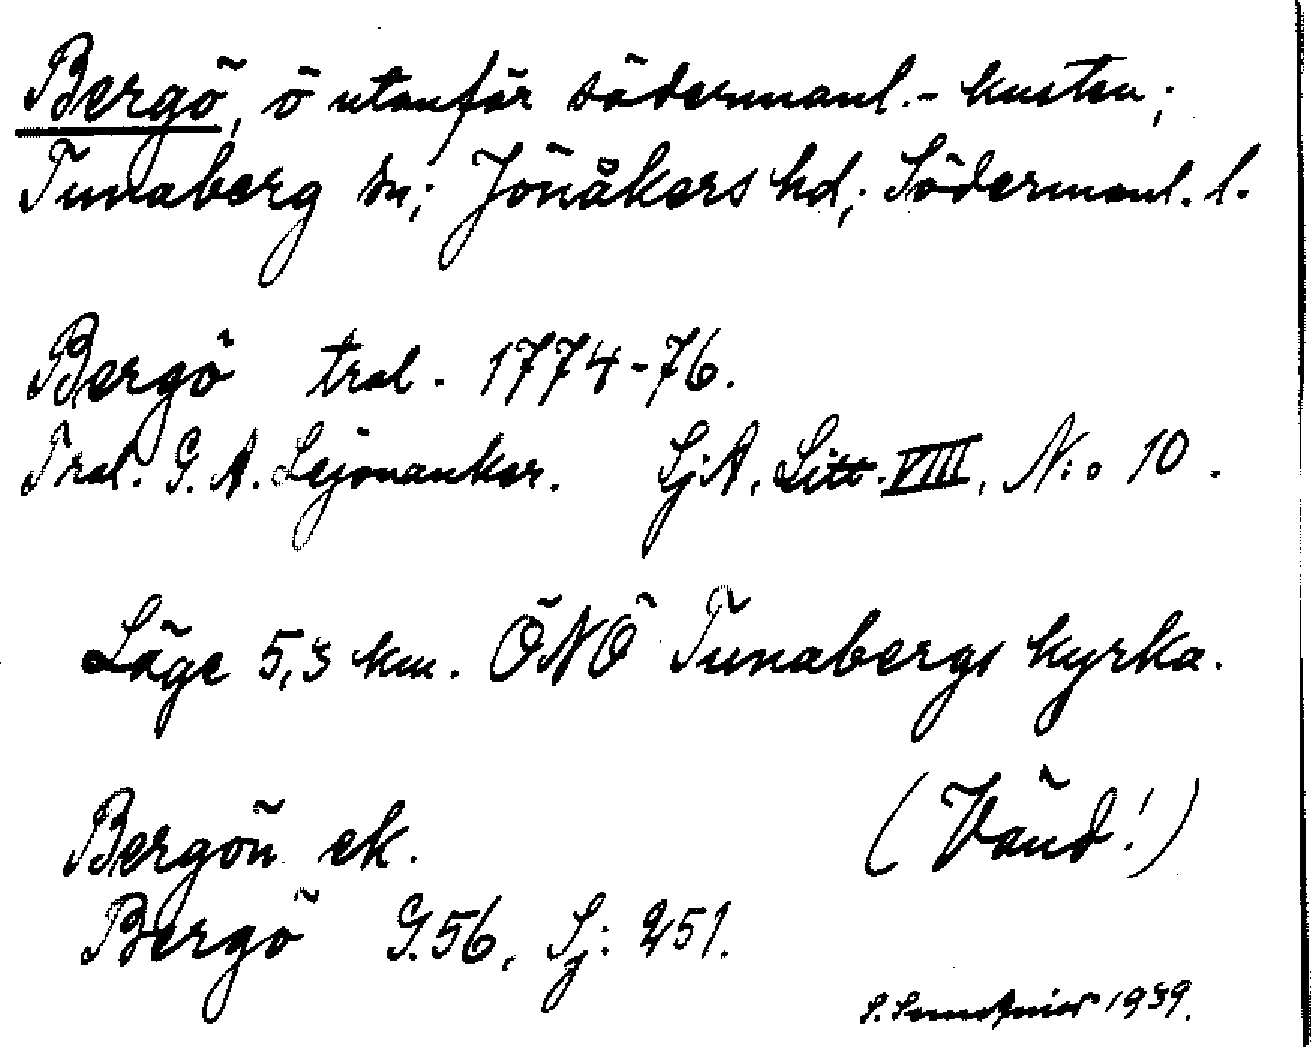 Bergö, ö utanför södermanl.-kusten;
Tunaberg sn; Jönåkers hd; Södermanl. l.
Bergö tral. 1774-76.
Tral. G. A. Lejonanker. SjA. Litt. VIII, N:o 10.
Läge 5,3 km. ÖNÖ Tunabergs kyrka.
(Vänd!)
Bergön ek.
Bergö G.56, Sj: 251.
S. 1939.